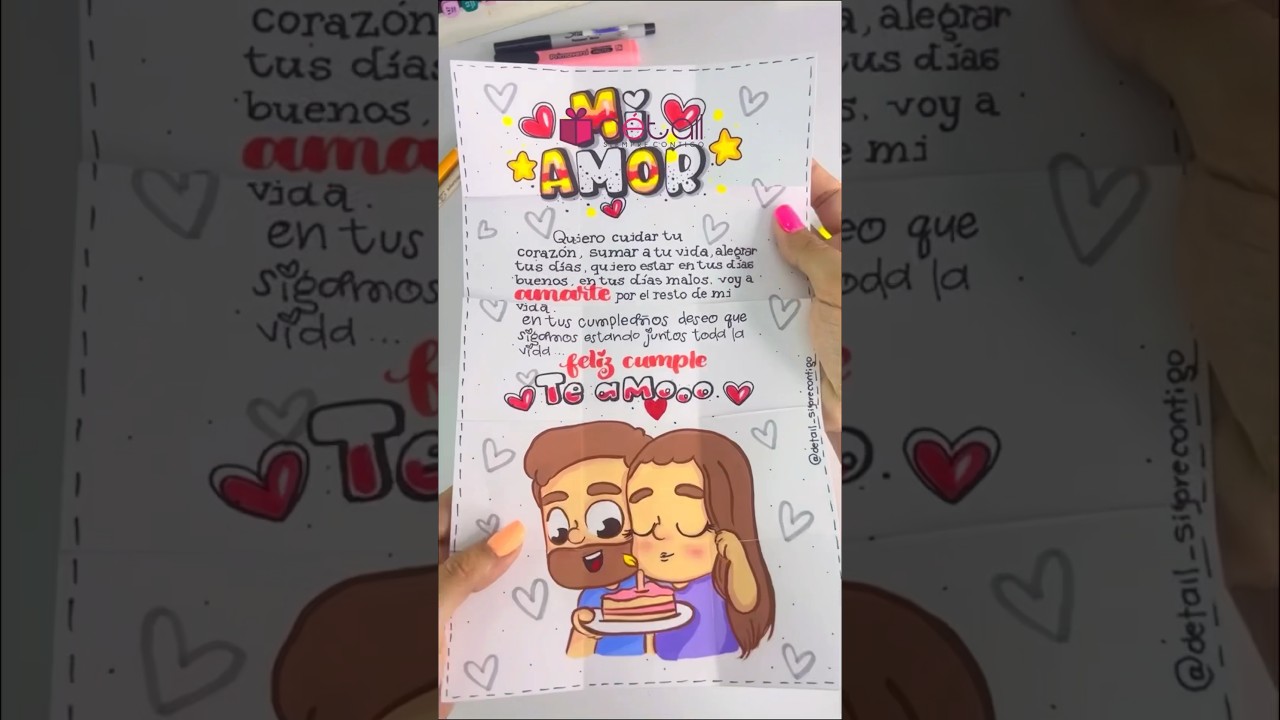 Mi
AMOR
étail
SIEMPRE CONTIGO
Quiero cuidar tu
corazón, sumar a tu vida, alegrar
tus días, quiero estar en tus días
buenos, en tus días malos. voy a
amarte por el resto de mi
vida.
en tus cumpleaños deseo que
sigamos estando juntos toda la
vida...
feliz cumple
Te aMo...
@detail_siprecontigo